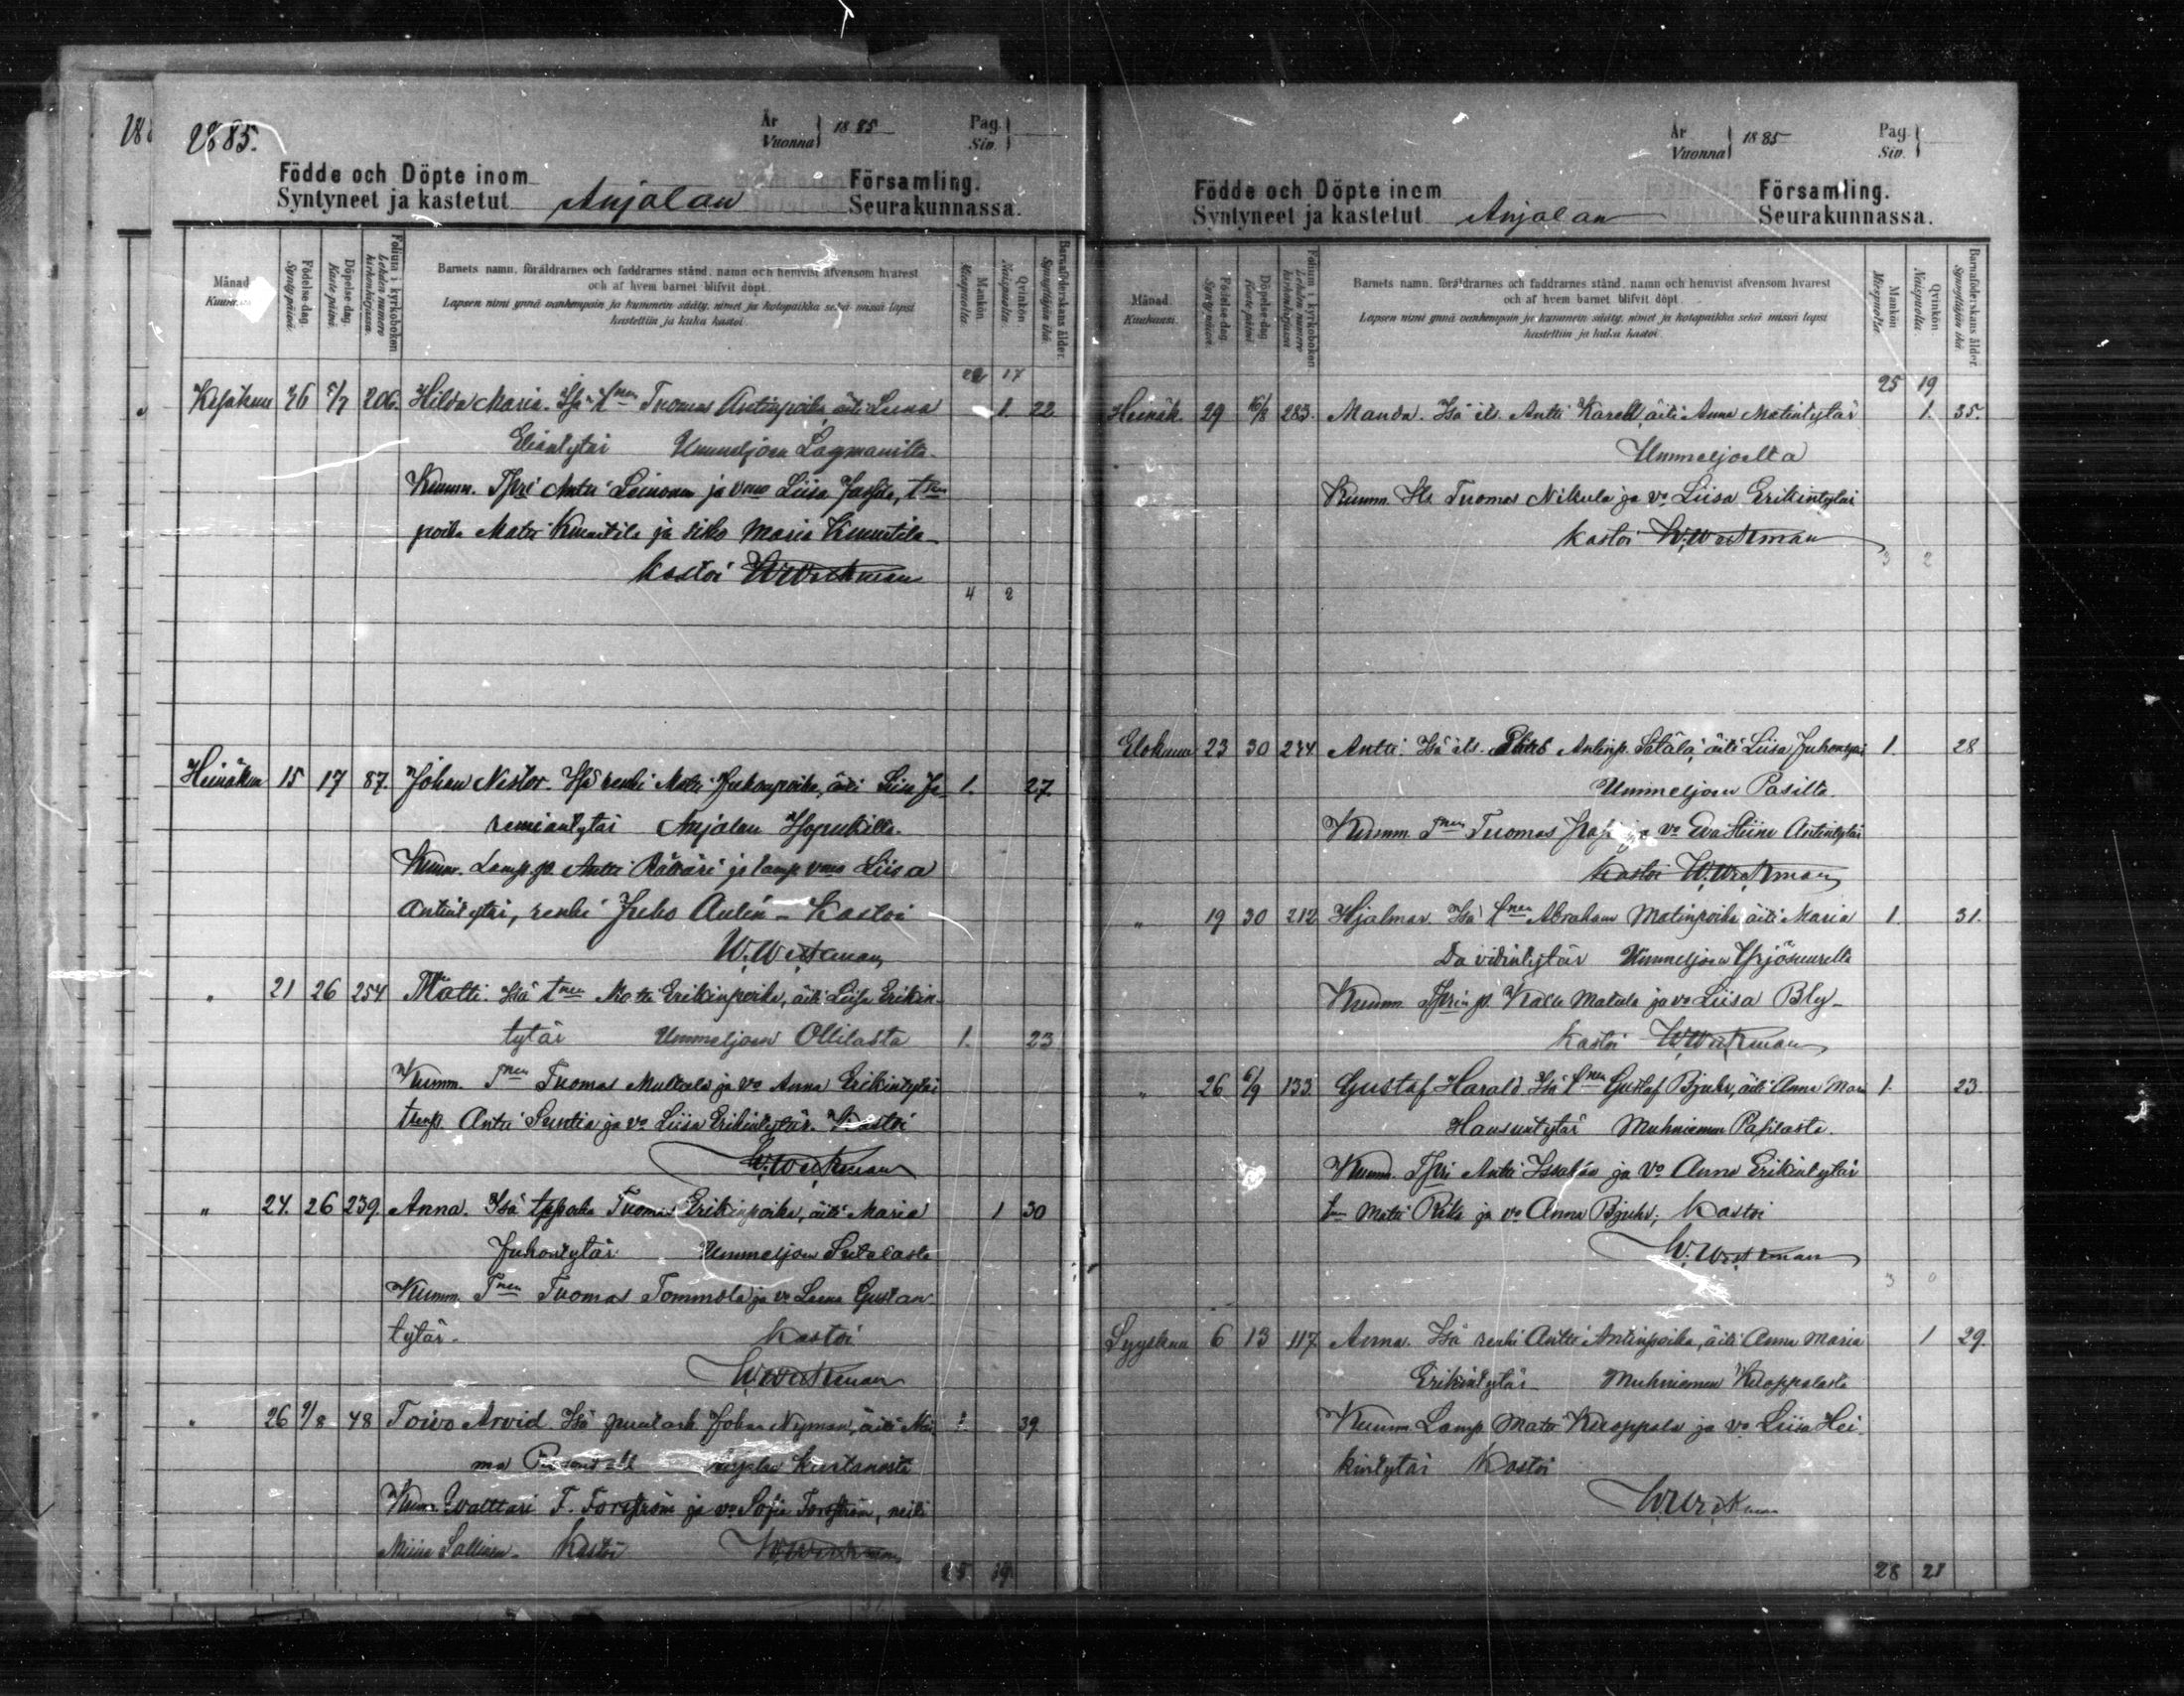 1885.
År
Vuonna
1885
Pag.
Siv.
Födde och Döpte inom
Syntyneet ja kastetut
Anjalan
Församling.
Seurakunnassa.
Månad
Födelse-dag.
Syntypäivä.
Döpelse-dag.
Kastepäivä.
Folium i kyrkoboken
Lehden numero kirkonkirjassa.
Barnets namn, föräldrarnes och faddrarnes stånd, namn och hemvist äfvensom hvarest
och af hvem barnet blifvit döpt.
Lapsen nimi ynnä vanhempain ja kummein sääty, nimet ja kotopaikka sekä missä lapsi
kastettiin ja kuka kastoi.
Mankön
Miespuolta.
Qvinkön
Naispuolta.
Barnaföderskans ålder.
Synnyttäjän ikä.
22 17
Kesäkuu 26 5/7 206. Hilda Maria. Isä tnen Tuomas Antinpoika, äiti Leena 1. 22
Eliantytär Ummeljoen Lagmanilta.
Kumm. Antti Leinonen ja vmo Liisa
poika Matti Kunttila ja sisko Maria Kunttila
kastoi W. Westman
4 2
Heinäkuu 15 17 87. Johan Nestor. Isä renki Matti Juhonpoika, äiti Liisa Je- 1. 27.
remiantytär Anjalan
Kumm. Lamp. p. Antti Rättäri ja lamp. vmo Liisa
Antintytär, renki Juho Aulin - Kastoi
W. Westman
" 21 26 254 Matti. Isä tnen Matti Erikinpoika, äiti Liisa Erikin-
tytär Ummeljoen Ollilasta 1. 23
Kumm. Tnen Tuomas Mullola ja vo Anna Erikintytär
Antti Suntia ja vo Liisa Erikintytär. Kastoi
W. Westman
" 24. 26 239. Anna. Isä Tuomas Erikinpoika, äiti Maria 1 30
Juhontytär Ummeljoen
Kumm. Tnen Tuomas Tommola ja vo Leena Gustan-
tytär. Kastoi
W. Westman
" 26 9/8 48 Toivo Arvid. Isä puutark. Johan Nyman, äiti 1. 39
Anjalan Kartanosta
Kumm. Walttari F. Forsström ja vo Sofia Forsström, neiti
Miina Sallinen. Kastoi W. Westman
25. 19.
År
Vuonna
1885
Pag.
Siv.
Födde och Döpte inom
Syntyneet ja kastetut
Anjalan
Församling.
Seurakunnassa.
Månad.
Kuukausi.
Födelse-dag.
Syntypäivä.
Döpelse-dag
Kastepäivä.
Folium i kyrkoboken
Lehden numero kirkonkirjassa
Barnets namn, föräldrarnes och faddrarnes stånd, namn och hemvist äfvensom hvarest
och af hvem barnet blifvit döpt.
Lapsen nimi ynnä vanhempain ja kummein sääty, nimet ja kotopaikka sekä missä lapsi
kastettiin ja kuka kastoi.
Mankön
Miespuolta.
Qvinkön
Naispuolta.
Barnaföderskans ålder.
Synnyttäjän ikä.
25 19
Heinäk. 29 16/8 283. Manda. Isä its. Antti Karell, äiti Anna Matintytär 1. 35.
Ummeljoelta
Kumm. Its. Tuomas Nikula ja vo Liisa Erikintytär
kastoi W. Westman
3 2
Elokuu 23 30 244. Antti. Isä its. Antinp. Setälä, äiti Liisa Juhontytär 1. 28
Ummeljoen Pasilta.
Kumm. Tnen Tuomas ja vo Eva Stiina Antintytär
kastoi W. Westman
" 19 30 212 Hjalmar. Isä tnen Abraham Matinpoika, äiti Maria 1. 31.
Davidintytär Ummeljoen Yrjösuurella
Kumm. p. Matula ja vo Liisa Bly-
kastoi W. Westman
" 26 6/9 133. Gustaf Harald. Isä tnen Gustaf Bjuhr, äiti Anna Maria 1. 23.
Hanuntytär Muhniemen Pasilasta.
Kumm. Antti ja vo Anna Erikintytär
tnen Matti ja vo Anna Bjuhr; Kastoi
W. Westman
3 0
Syyskuu 6 13 117. Anna. Isä renki Antti Antinpoika, äiti Anna Maria 1 29.
Erikintytär Muhniemen Kuoppalasta
Kumm. Lamp. Matti Kuoppala ja vo Liisa Hei-
kintytär Kastoi
W. Westman
28 21